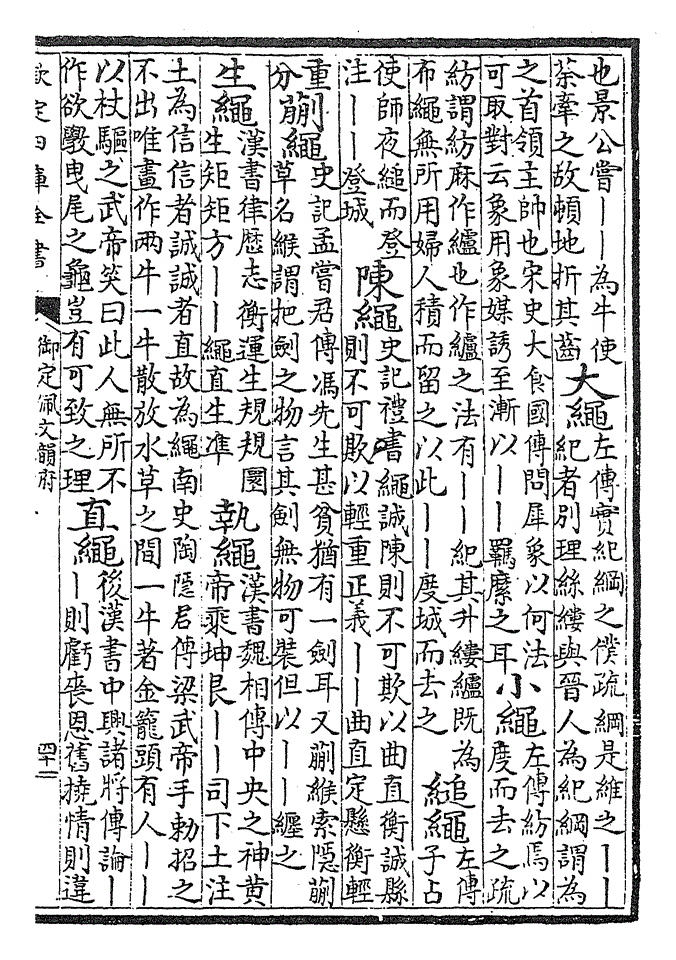 也景公嘗——為牛使
荼牽之故頓地折其齒
大繩
左傳實紀綱之僕疏綱是維之——
紀者別理絲縷與晉人為紀綱謂為
之首領主帥也宋史大食國傳問犀象以何法
可取對云象用象媒誘至漸以——羈縻之耳
小繩
左傳紡焉以
度而去之疏
紡謂紡麻作纑也作纑之法有——紀其升縷纑既為
布繩無所用婦人積而留之以此——度城而去之
縋繩
左傳
子占
使師夜縋而登
注——登城
陳繩
史記禮書繩誠陳則不可欺以曲直衡誠縣
則不可欺以輕重正義——曲直定懸衡輕
重
分
蒯繩
史記孟嘗君傳馮先生甚貧猶有一劍耳又蒯緱索隱蒯
草名緱謂把劍之物言其劍無物可裝但以——纏之
生繩
漢書律歷志衡運生規規圜
生矩矩方——繩直生凖
執繩
漢書魏相傳中央之神黄
帝乘坤艮——司下土注
土為信信者誠誠者直故為繩南史陶隱君傳梁武帝手勅招之
不出唯畫作兩牛一牛散放水草之間一牛著金籠頭有人——
以杖驅之武帝笑曰此人無所不
作欲斆曳尾之龜豈有可致之理
直繩
後漢書中興諸將傳論—
—則虧喪恩舊撓情則違
欽定四庫全書
御定佩文韻府
四十二